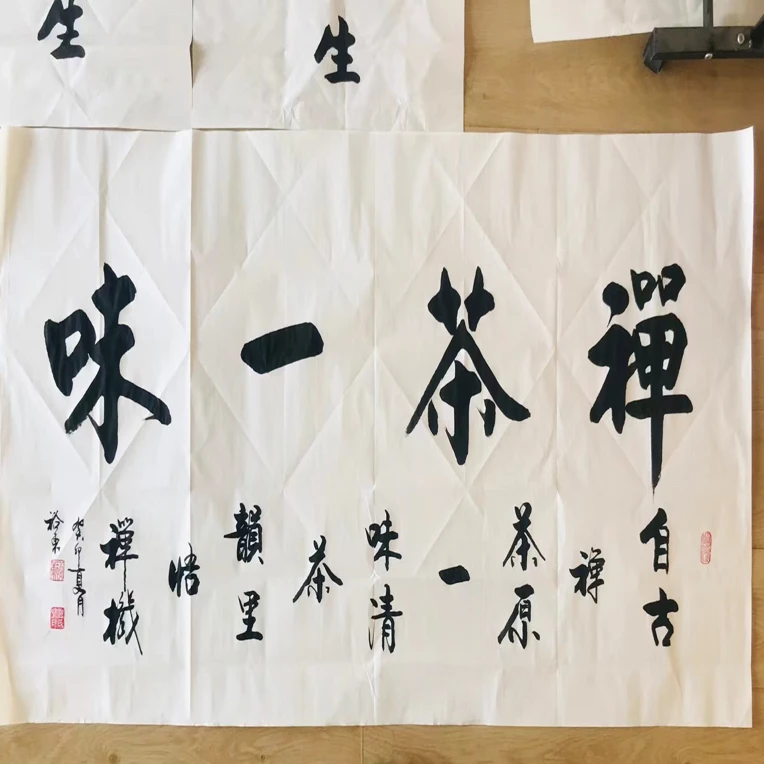 生
生
禪茶一味
自古
禪
茶原
一
味清
茶
韻里
悟
禪機
癸卯夏月